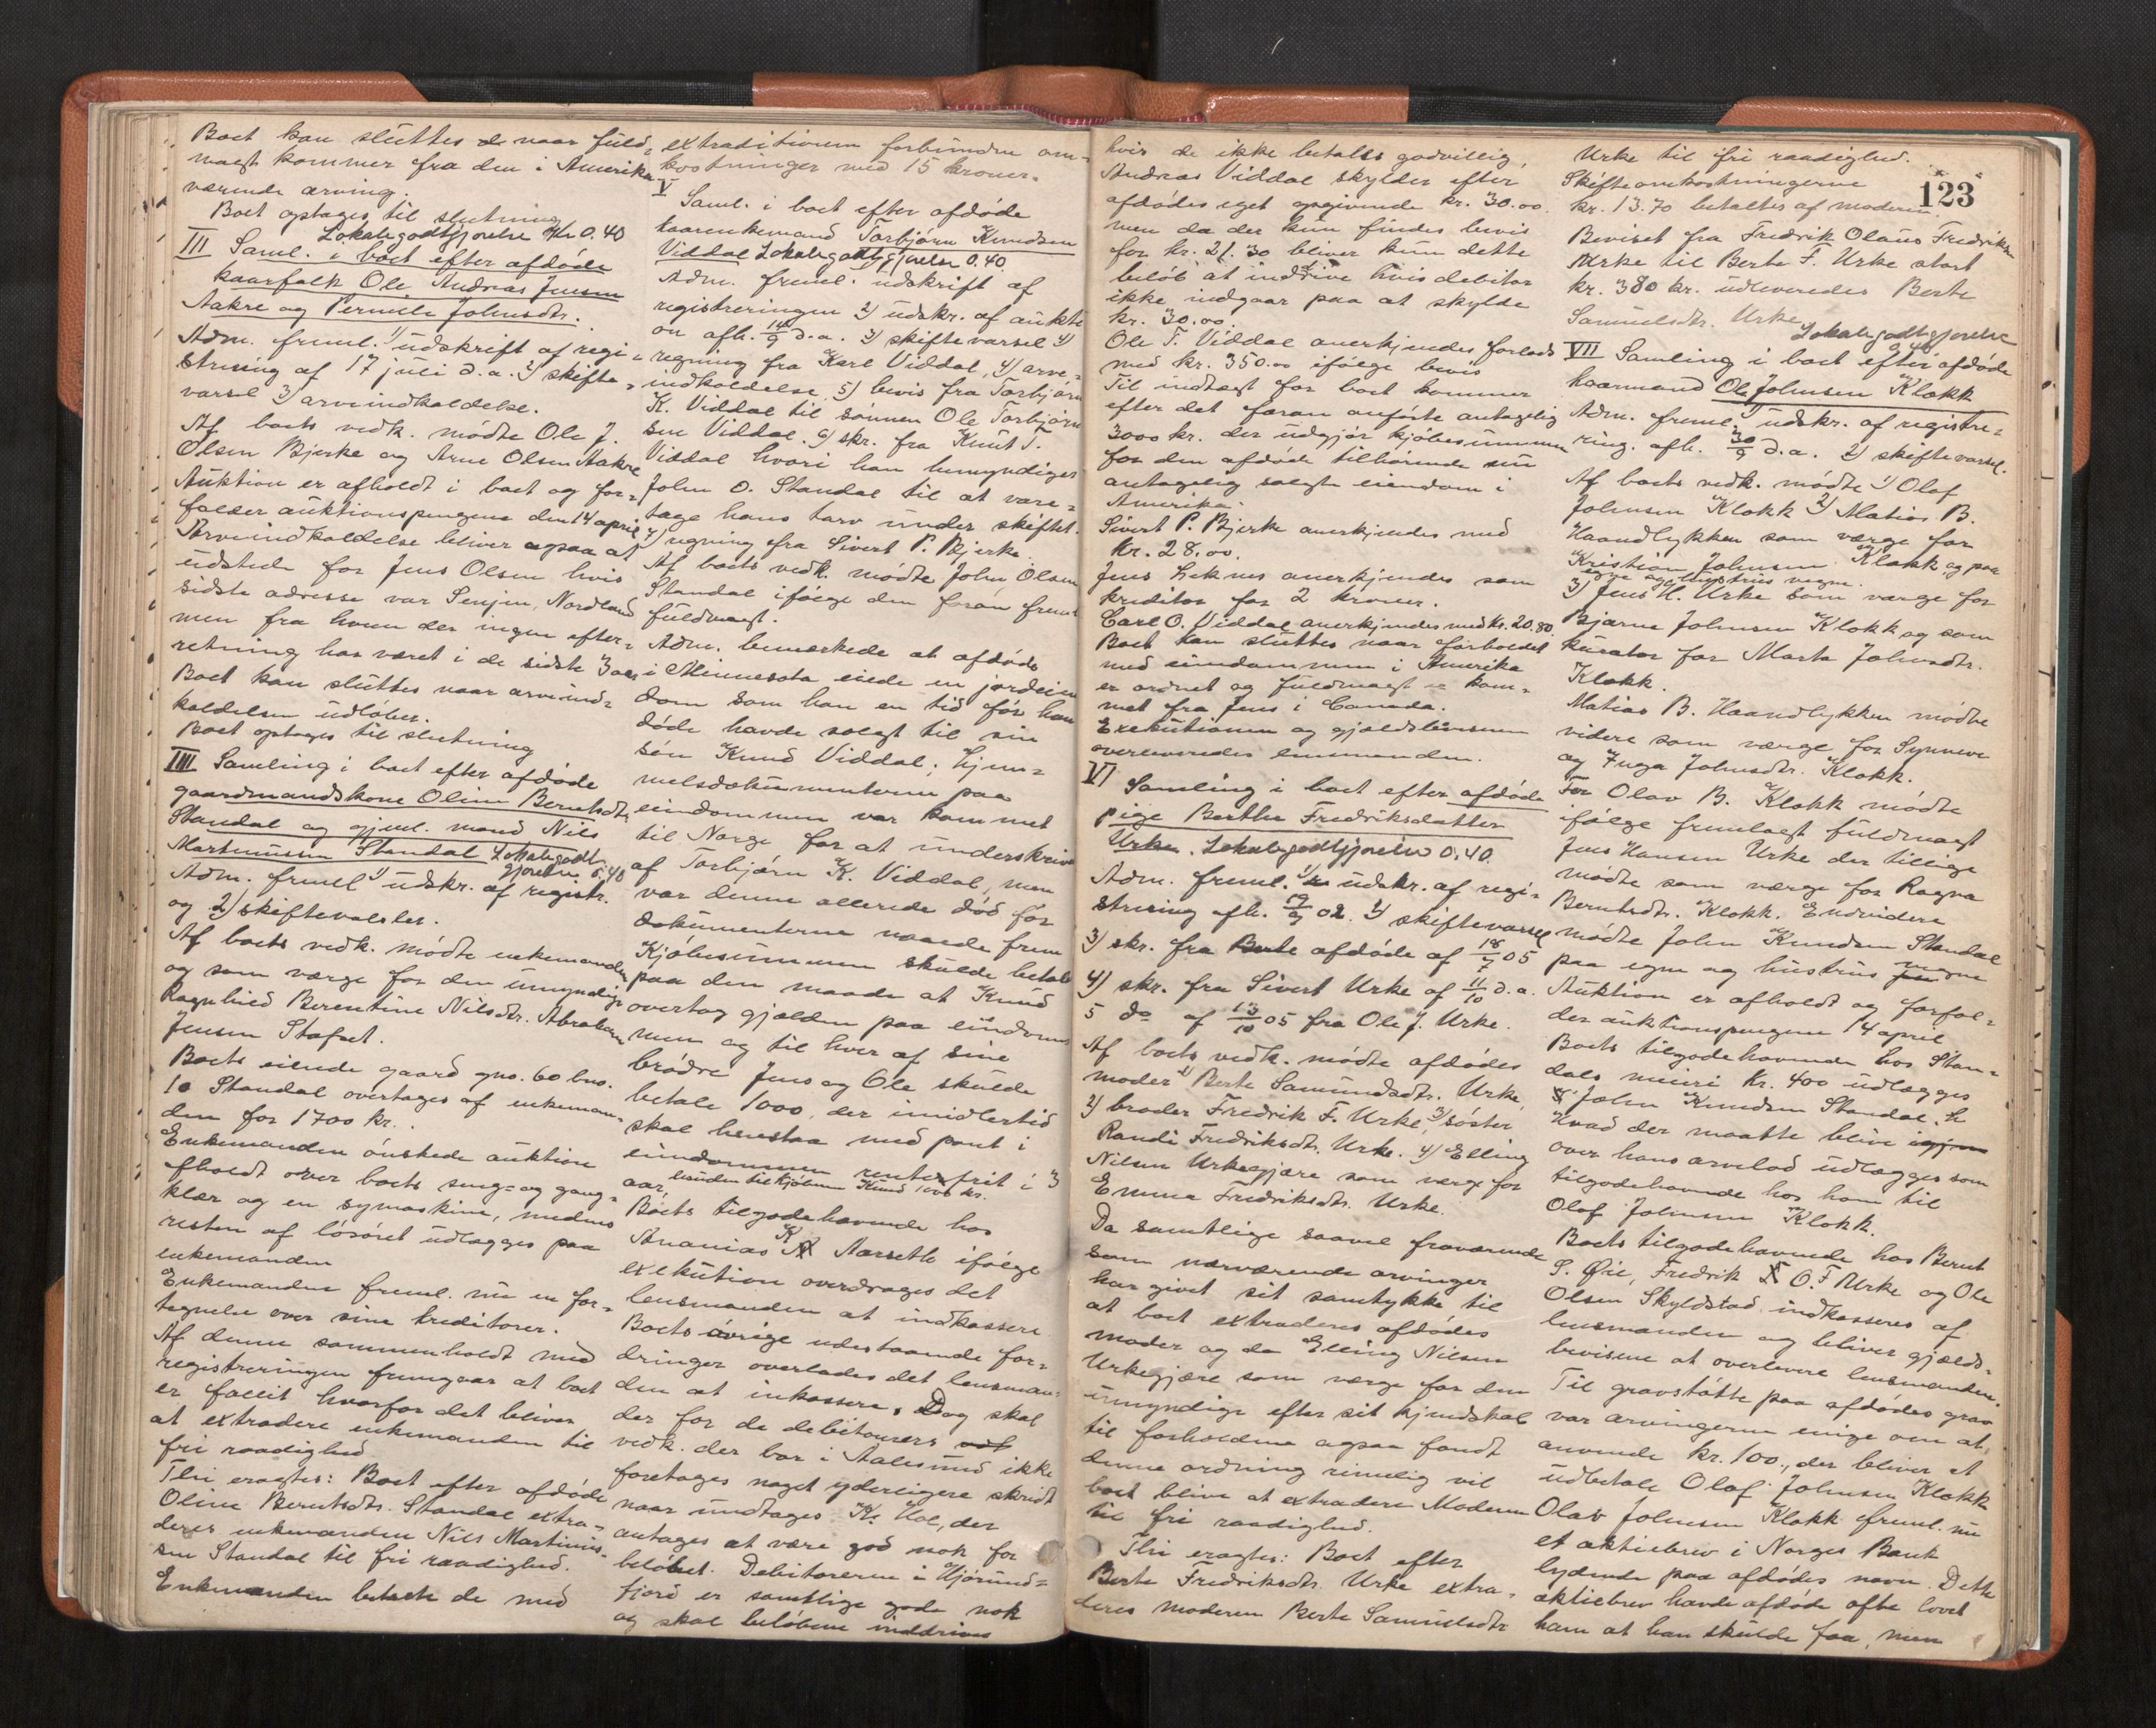 Boet kan sluttes naar fuld-
magt kommer fra den i Amerika
værende arving.
Boet optages til slutning
Lokalegodtgjørelse Kr 0.40
III Saml. i boet efter afdøde
kaarfolk Ole Andreas Jensen
Aakre og Pernille Johnsdtr.
Adm. freml. 1) udskrift af regi-
strering af 17 juli d.a. 2) skifte-
varsel 3) arveindkaldelse.
Af boets vedk. mødte Ole J.
Olsen Bjerke og Arne Olsen Aakre
Auktion er afholdt i boet og for-
falder auktionspengene den 14 april
Arveindkaldelse bliver ogsaa at
udstede for Jens Olsen hvis
sidste adresse var Senjen, Nordland
men fra hvem der ingen efter-
retning har været i de sidste 3 aar
Boet kan sluttes naar arveind-
kaldelsen udløber.
Boet optages til slutning
IIII Samling i boet efter afdøde
gaardmandskone Oline Berntsdtr.
Standal og gjenl. mand Nils
Martinussen Standal Lokalegodt-
gjørelse 0.40
Adm. freml 1) udskr. af registr.
og 2) skiftevarsler.
Af boets vedk. mødte enkemanden
og som værge for den umyndige
Ragnhild Berentine Nilsdtr. Abraham
Jensen Stafset.
Boets eiende gaard gno. 60 bno.
10 Standal overtages af enkeman-
den for 1700 kr.
Enkemanden ønskede auktion
afholdt over boets seng- og gang-
klær og en symaskine, medens
resten af løsøret udlægges paa
enkemanden
Enkemanden freml. nu en for-
tegnelse over sine kreditorer.
Af denne sammenholdt med
registreringen fremgaar at boet
er fallit hvorfor det bliver
at extradere enkemanden til
fri raadighed
Thi eragtes: Boet efter afdøde
Oline Berntsdtr. Standal extra-
deres enkemanden Nils Martinus-
sen Standal til fri raadighed.
Enkemanden betalte de med
extraditionen forbundne om-
kostninger med 15 kroner.
V Saml. i boet efter afdøde
kaarenkemand Torbjørn Knudsen
Viddal Lokalegodtgjørelse 0.40.
Adm. freml. udskrift af
registreringen 2) udskr. af aukti
on afh. 14/9 d.a. 3) skiftevarsel 4)
regning fra Karl Viddal, 4) arve-
indkaldelse, 5) bevis fra Torbjørn
K. Viddal til sønnen Ole Torbjørn
sen Viddal. 6) skr. fra Knut T.
Viddal hvori han bemyndiger
John O. Standal til at vare-
tage hans tarv under skiftet.
7) regning fra Sivert P. Bjerke
Af boets vedk. mødte John Olsen
Standal ifølge den foran freml
fuldmagt.
Adm. bemærkede at afdøde
i Minnesota eiede en jordeien
dom som han en tid før han
døde havde solgt til sin
søn Knud Viddal; hjem-
melsdokumenterne paa
eiendommen var kommet
til Norge for at underskrives
af Torbjørn K. Viddal, men
var denne allerede død før
dokumenterne naaede frem
Kjøbesummen skulde betales
paa den maade at Knud
overtog gjælden paa eiendom
men og til hver af sine
brødre Jens og Ole skulde
betale 1000, der imidlertid
skal henstaa med pant i
eiendommen rentefrit i 3
aar, desuden tilkjøbmen Knud 1000 kr.
Boets tilgodehavende hos
Ananias K Aarseth ifølge
exekution overdrages det
lensmanden at indkassere
Boets øvrige udestaaende for-
dringer overlades det lensman-
den at inkassere. Dog skal
der for de debitorers
vedk. der bor i Aalesund ikke
foretages noget yderligere skridt
naar undtages K. Hol, der
antages at være god nok for
beløbet. Debitorerne i Hjørund-
fjord er samtlige gode nok
og skal beløbene inddrives
hvis de ikke betales godvillig,
Andreas Viddal skylder efter
afdødes eget opgivende kr. 30.00
men da der kun findes bevis
for kr. 21.30 bliver kun dette
beløb at inddrive hvis debitor
ikke indgaar paa at skylde
kr. 30.00.
Ole T. Viddal anerkjendes forlods
med kr. 350.00 ifølge bevis
Til indtægt for boet kommer
efter det foran anførte antagelig
3000 kr. der udgjør kjøbesummen
for den afdøde tilhørende nu
antagelig solgte eiendom i
Amerika.
Sivert P. Bjerke anerkjendes med
kr. 28.00.
Jens Leknes anerkjendes som
kreditor for 2 kroner.
Carl O. Viddal anerkjendes med kr. 20.80.
Boet kan sluttes naar forholdet
med eiendommen i Amerika
er ordnet og fuldmagt kom-
met fra Jens i Canada.
Exekutionen og gjældsbevisene
overleveredes lensmanden.
VI Samling i boet efter afdøde
pige Berthe Fredriksdatter
Urke. Lokalegodtgjørelse 0.40.
Adm. freml. 1) udskr. af regi-
strering afh. 19/9 02. 2) skiftevarsel
3) skr. fra afdøde af 18/7 05
4) skr. fra Sivert Urke af 11/10 d.a.
5 do af 13/10 05 fra Ole J. Urke.
Af boets vedk. mødte afdødes
moder 1) Berte Samundsdtr. Urke,
2) broder Fredrik F. Urke, 3) søster
Randi Fredriksdtr. Urke. 4) Elling
Nilsen Urkegjære som værge for
Emma Fredriksdtr. Urke.
Da samtlige saavel fraværende
som nærværende arvinger
har givet sit samtykke til
at boet extraderes afdødes
moder og da Elling Nilsen
Urkegjære som værge for den
umyndige efter sit kjendskab
til forholdene ogsaa fandt
denne ordning rimelig vil
boet blive at extradere Moderen
til fri raadighed.
Thi eragtes: Boet efter
Berte Fredriksdtr. Urke extra-
deres moderen Berte Samuelsdtr
123
Urke til fri raadighed.
Skifteomkostningerne
kr. 13.70 betaltes af moderen.
Beviset fra Fredrik Olaus Fredriksen
Urke til Berte F. Urke stort
kr. 380 kr. udleveredes Berte
Samuelsdtr. Urke
Lokalegodtgjørelse
0.40
VII Samling i boet efter afdøde
kaarmand Ole Johnsen Klokk
Adm. freml. 1) udskr. af registre-
ring. afh. 30/9 d.a. 2) skiftevarsel.
Af boets vedk. mødte 1) Olaf
Johnsen Klokk 2) Matias B.
Haandlykken som værge for
Kristian Johnsen Klokk og paa
egne og hustrus vegne.
3) Jens H. Urke som værge for
Bjarne Johnsen Klokk og som
kurator for Marta Johnsdtr.
Klokk.
Matias B. Haandlykken mødte
videre som værge for Synneve
og Inga Johnsdtr. Klokk.
For Olav B. Klokk mødte
ifølge fremlagt fuldmagt
Jens Hansen Urke der tillige
mødte som værge for Ragna
Berntsdtr. Klokk. Endvidere
mødte John Knudsen Standal
paa egne og hustrus vegne
Auktion er afholdt og forfal-
der auktionspengene 14 april
Boets tilgodehavende hos Stan-
dals meieri Kr. 400 udlægges
John Knudsen Standal.
Hvad der maatte blive
over hans arvelod udlægges som
tilgodehavende hos ham til
Olaf Johnsen Klokk.
Boets tilgodehavende hos Bernt
S. Øie, Fredrik O. F Urke og Ole
Olsen Skyldstad indkasseres af
lensmanden og bliver gjælds-
bevisene at overlevere lensmanden.
Til gravstøtte paa afdødes grav
var arvingerne enige om at
anvende kr. 100., der bliver at
udbetale Olaf Johnsen Klokk
Olav Johnsen Klokk freml. nu
et aktiebrev i Norges Bank
lydende paa afdødes navn. Dette
aktiebrev havde afdøde ofte lovet
ham at han skulde faa, men